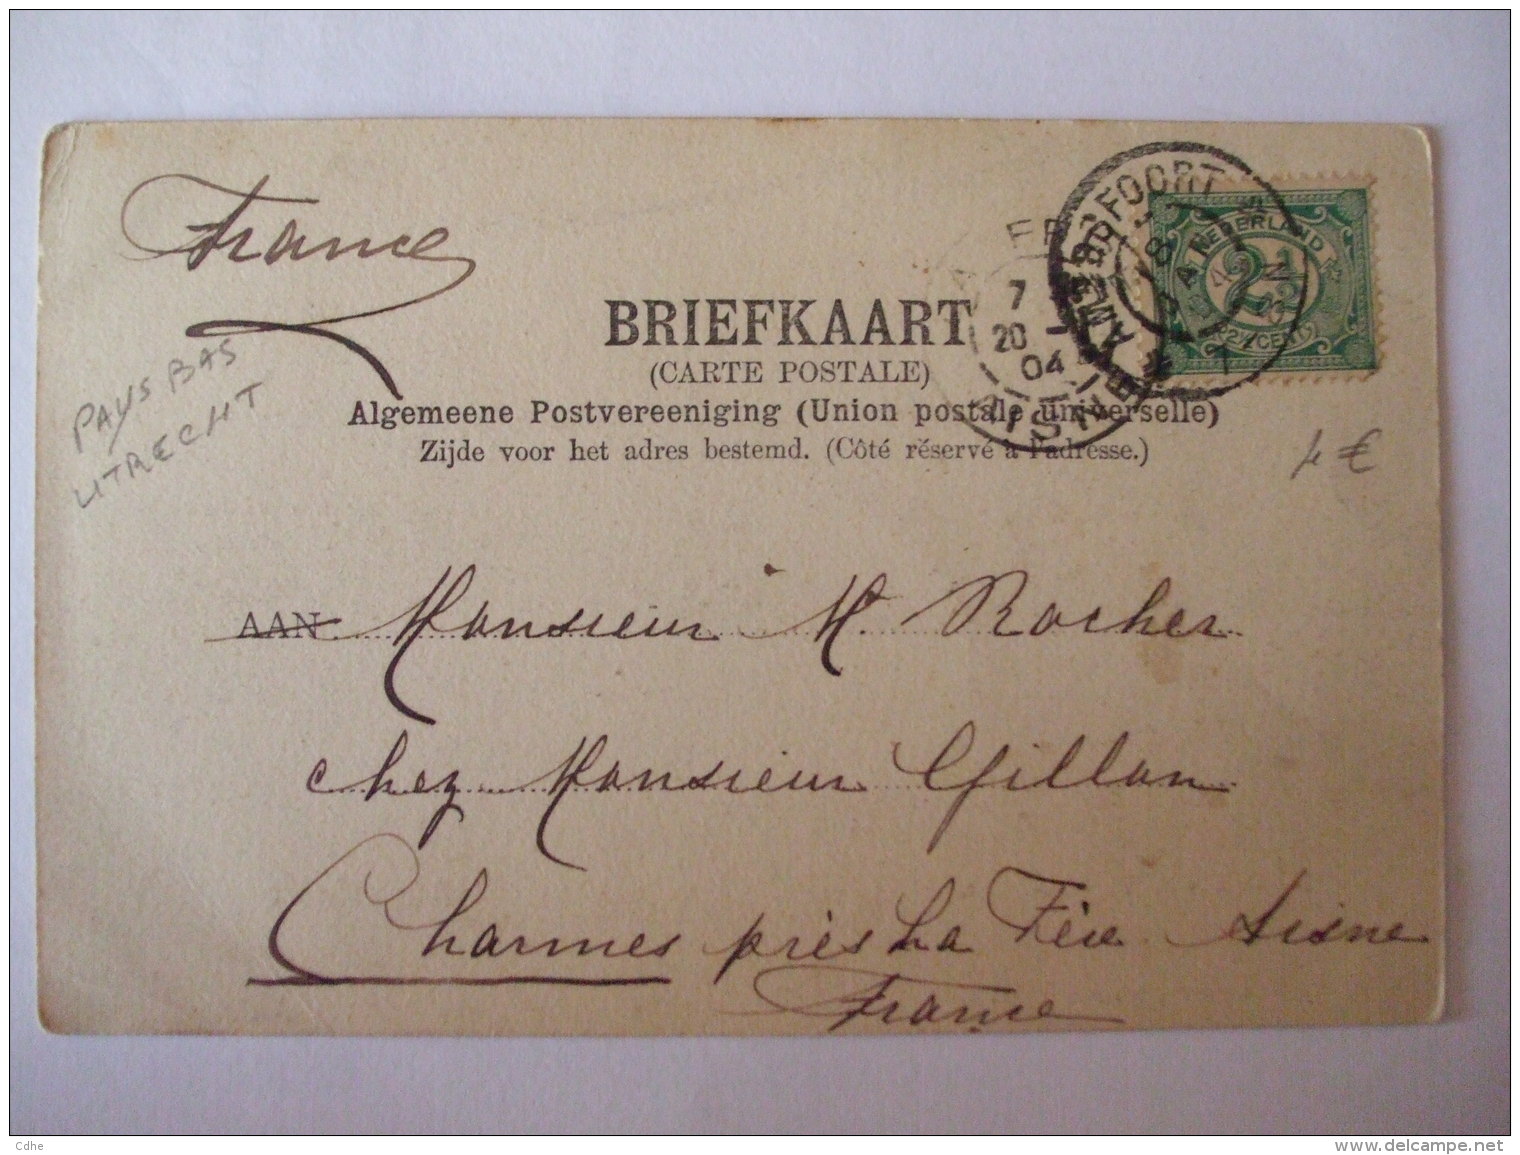 France
PAYS BAS
UTRECHT
BRIEFKAART
(CARTE POSTALE)
Algemeene Postvereeniging (Union postale universelle)
Zijde voor het adres bestemd. (Côté réservé à l'adresse.)
AMERSFOORT
NEDERLAND
2½
CENT
7
20
04
AISNE
4 €
AAN Monsieur M. Rocher
chez Monsieur Gillon
Charmes près La Fère Aisne
France
Cdhe
www.delcampe.net